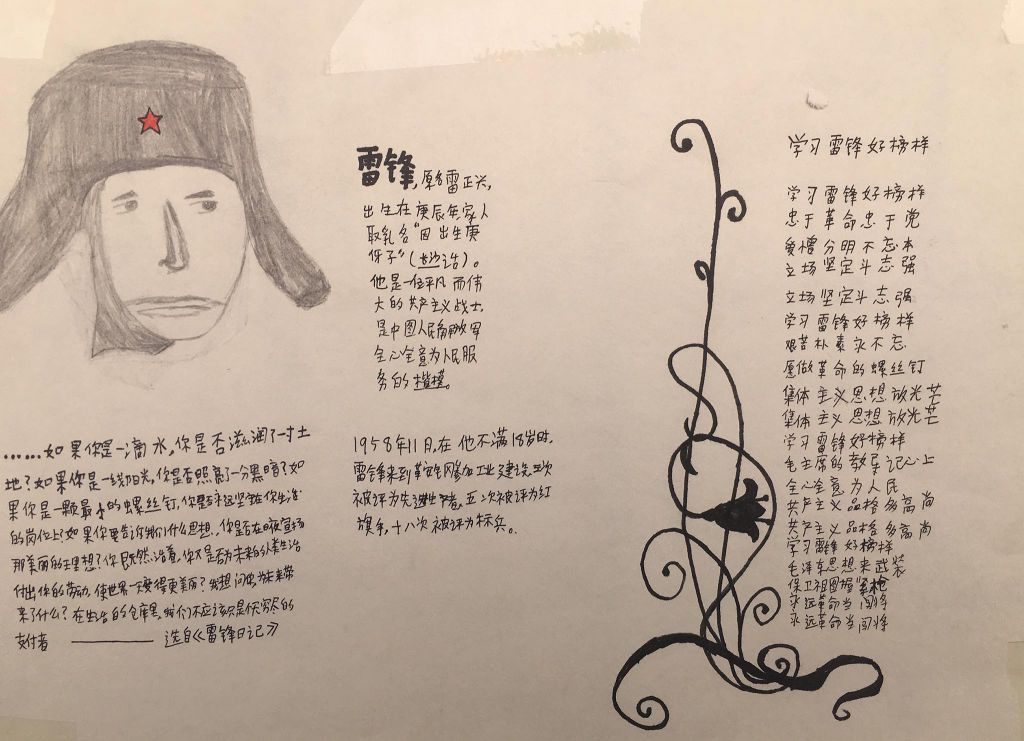 雷锋,原名雷正兴,
出生在庚辰年,家人
取乳名"因出生庚
伢子"(长沙话)。
他是一位平凡而伟
大的共产主义战士,
是中国人民解放军
全心全意为人民服
务的楷模。
......如果你是一滴水,你是否滋润了一寸土
地?如果你是一线阳光,你是否照亮了一分黑暗?如
果你是一颗最小的螺丝钉,你是否永远坚守在你生活
的岗位上?如果你要告诉我们什么思想,你是否在日夜宣扬
那美丽的理想?你既然活着,你又是否为未来的人类生活
付出你的劳动,使世界一天天变得更美丽?我想问你,为未来带
来了什么?在生活的仓库里,我们不应该只是个无穷尽的
支付者 ——— 选自《雷锋日记》
1958年11月,在他不满18岁时,
雷锋来到鞍钢参加工业建设,三次
被评为先进生产者,五次被评为红
旗手,十八次被评为标兵。
学习雷锋好榜样
学习雷锋好榜样
忠于革命忠于党
爱憎分明不忘本
立场坚定斗志强
立场坚定斗志强
学习雷锋好榜样
艰苦朴素永不忘
愿做革命的螺丝钉
集体主义思想放光芒
集体主义思想放光芒
学习雷锋好榜样
毛主席的教导记心上
全心全意为人民
共产主义品格多高尚
共产主义品格多高尚
学习雷锋好榜样
毛泽东思想来武装
保卫祖国握紧枪
永远革命当闯将
永远革命当闯将